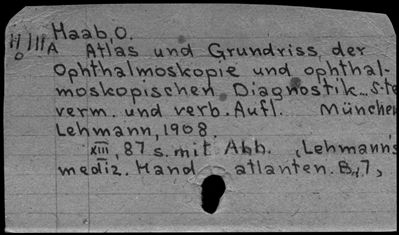 Haab, O.
II) III A Atlas und Grundriss der
Ophthalmoskopie und ophthal-
moskopischen Diagnostik... 5.te
verm. und verb. Aufl. München
Lehmann, 1908.
XIII, 87 s. mit Abb. (Lehmann's
mediz. Hand atlanten. Bd, 7,